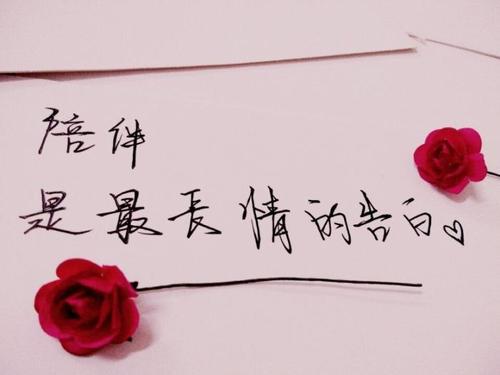 陪伴
是最長情的告白。♡